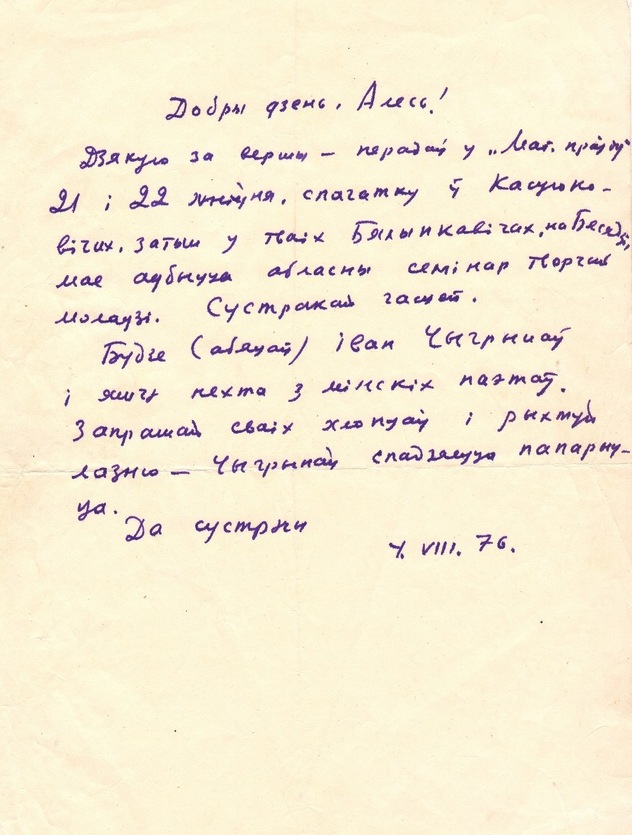 Добры дзень, Алесь!
Дзякую за вершы — перадаў у „Маг. праўду"
21 і 22 жніўня, спачатку ў Касцюко-
вічах, затым у тваіх Бялынкавічах, на Бесядзі,
мае адбыцца абласны семінар творчай
моладзі. Сустракай гасцей.
Будзе (абяцаў) Іван Чыгрынаў
і яшчэ нехта з мінскіх паэтаў.
Запрашай сваіх хлопцаў і рыхтуй
лазню — Чыгрынаў спадзяецца папарыц-
ца.
Да сустрэчы
4. VIII. 76.